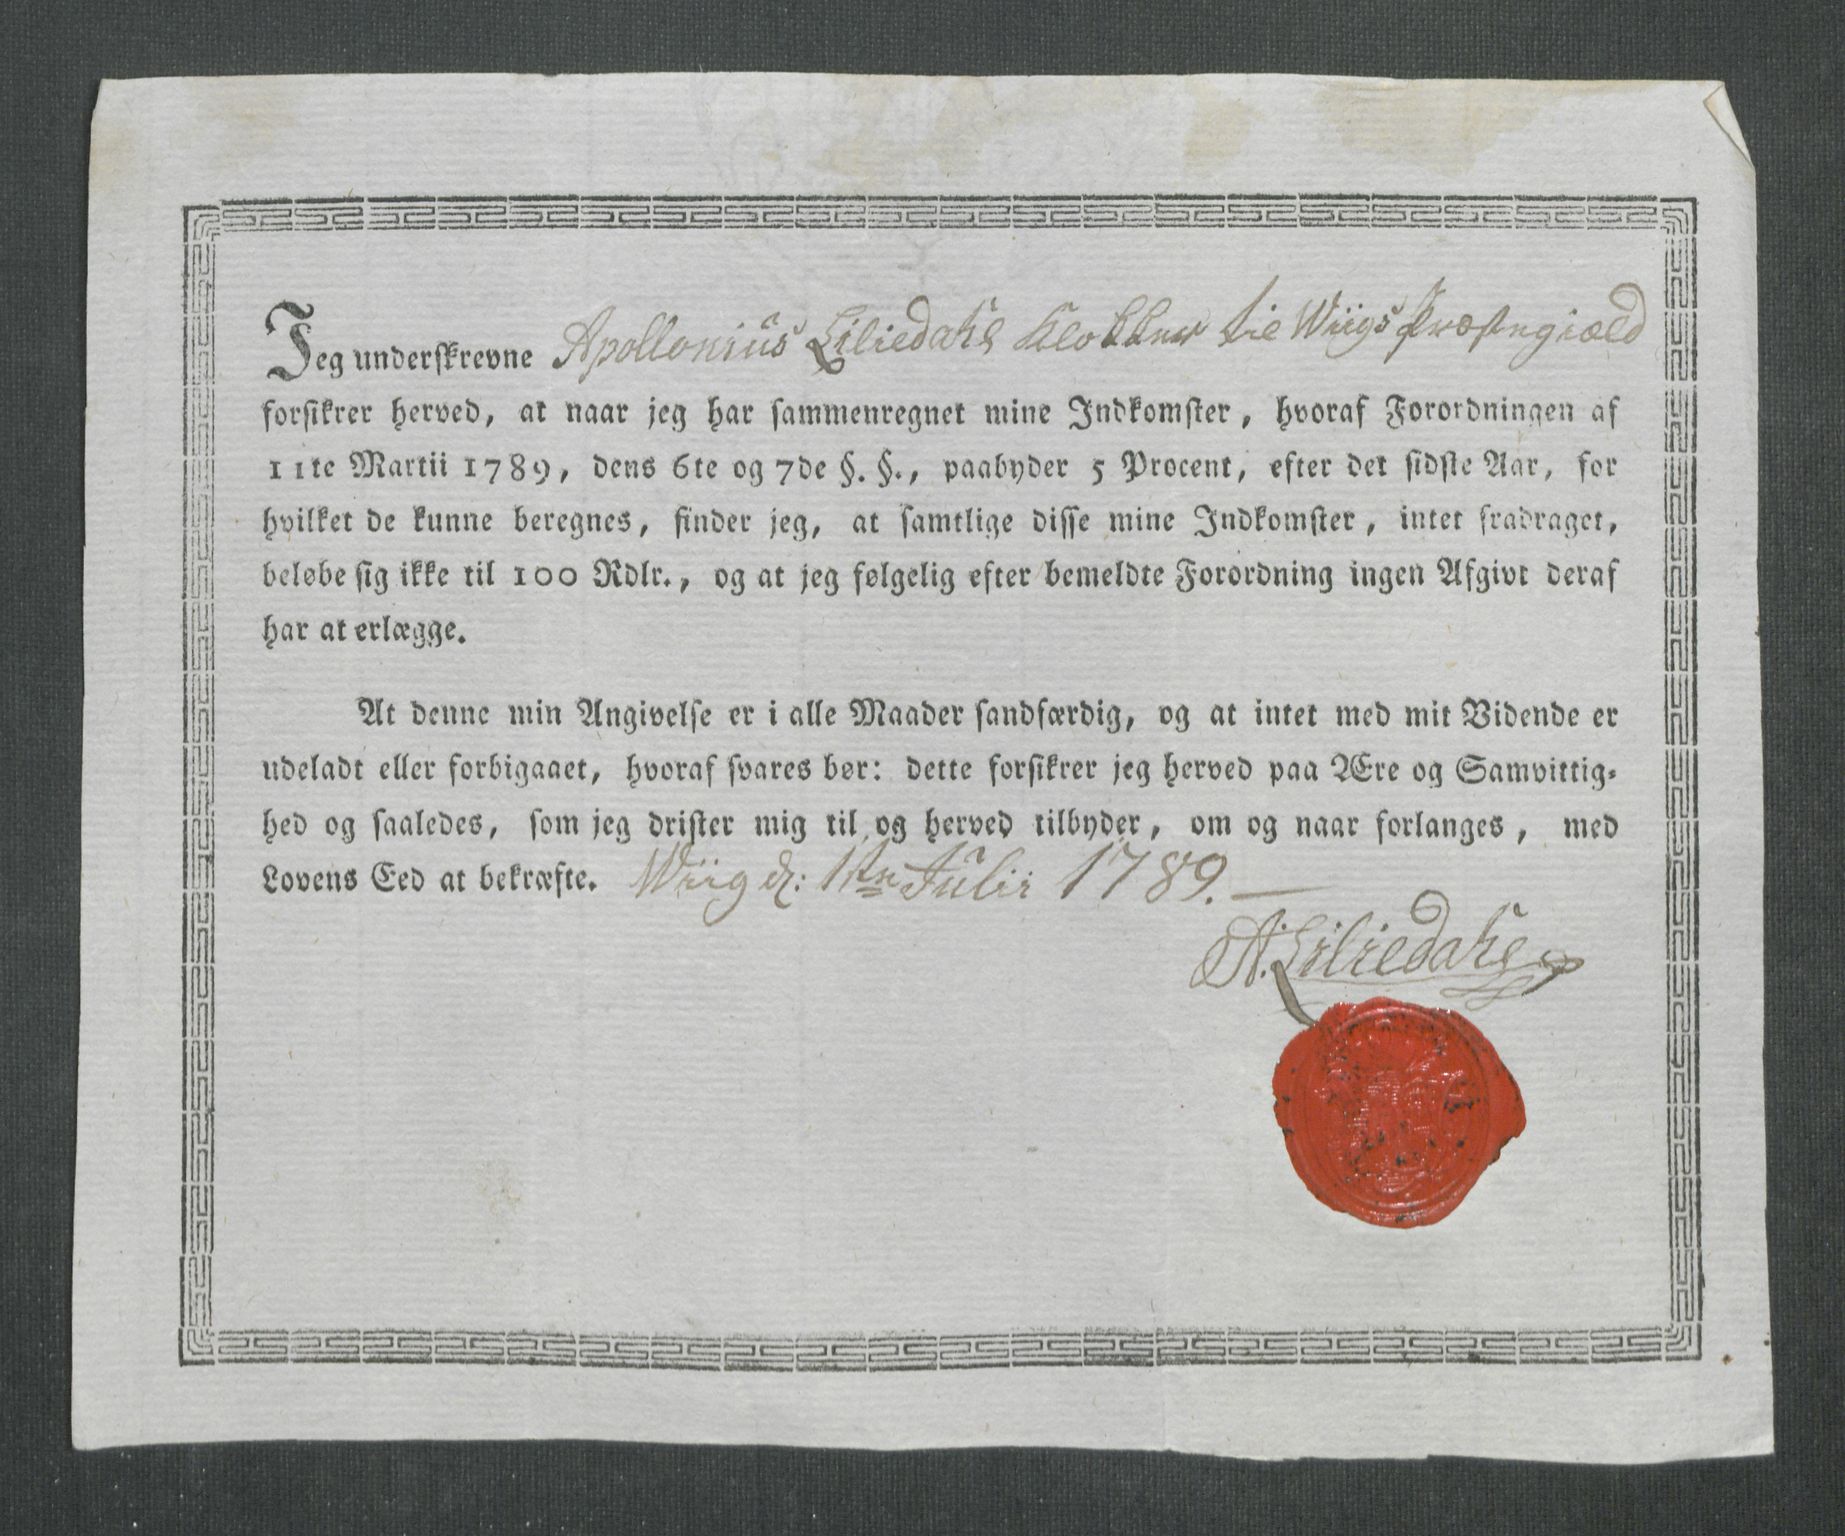 Jeg underskrevne Apollonius Liliedahl Klokker til Wiigs Præstegiæld
forsikrer herved, at naar jeg har sammenregnet mine Indkomster, hvoraf Forordningen af
11te Martii 1789, dens 6te og 7de §. §., paabyder 5 Procent, efter det sidste Aar, for
hvilket de kunne beregnes, finder jeg, at samtlige disse mine Indkomster, intet fradraget,
beløbe sig ikke til 100 Rdlr., og at jeg følgelig efter bemeldte Forordning ingen Afgivt deraf
har at erlægge.
At denne min Angivelse er i alle Maader sandfærdig, og at intet med mit Vidende er
udeladt eller forbigaaet, hvoraf svares bør: dette forsikrer jeg herved paa Ære og Samvittig-
hed og saaledes, som jeg drister mig til og herved tilbyder, om og naar forlanges, med
Lovens Eed at bekræfte. Wiig d: 1ten Julii 1789.
A. Liliedahl